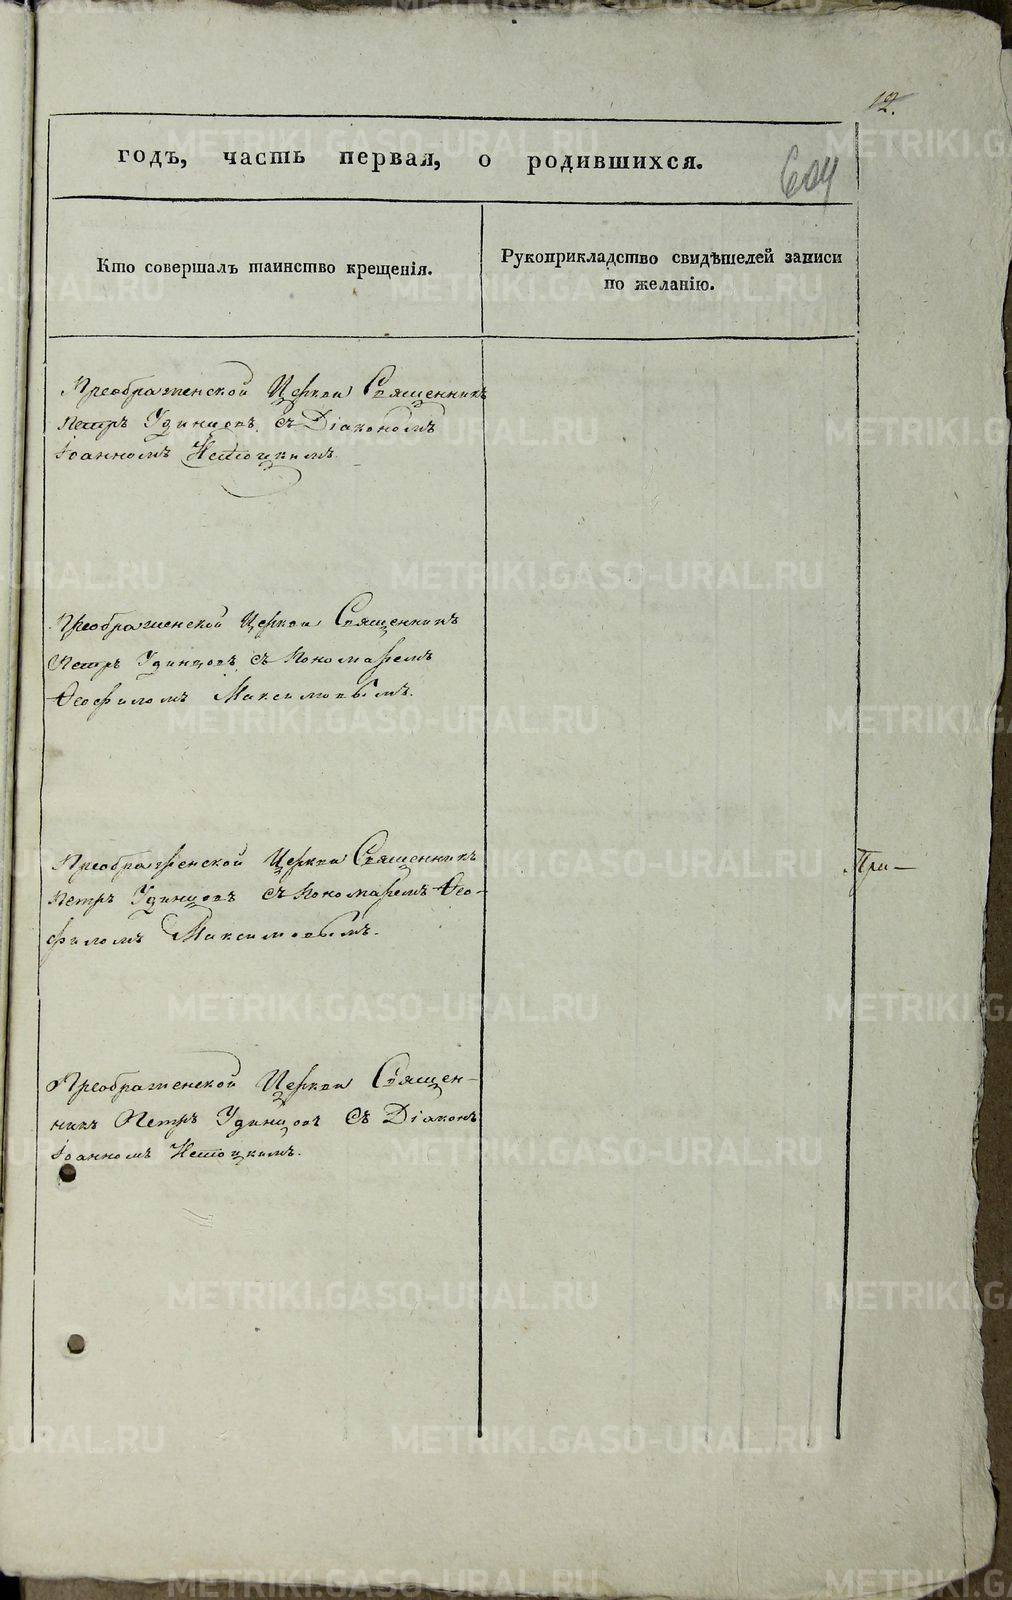 12.
годъ, часть первая, о родившихся.
604
Кто совершалъ таинство крещенія.
Рукоприкладство свидѣтелей записи
по желанію.
Преображенской Церкви Священникъ
Петръ Удинцовъ съ Діакономъ
Іоанномъ
Преображенской Церкви Священникъ
Петръ Удинцовъ съ Пономаремъ
Ѳеофиломъ Максимовымъ.
Преображенской Церкви Священникъ
Петръ Удинцовъ съ Пономаремъ Ѳео-
филомъ Максимовымъ.
При—
Преображенской Церкви Священ-
никъ Петръ Удинцовъ съ Діаконъ
Іоанномъ
METRIKI.GASO-URAL.RU